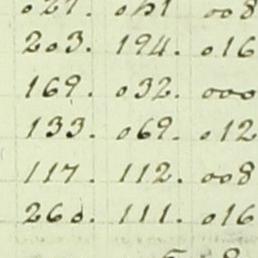 203. 194. 016
169. 032. 000
133. 069. 012
117. 112. 008
260. 111. 016